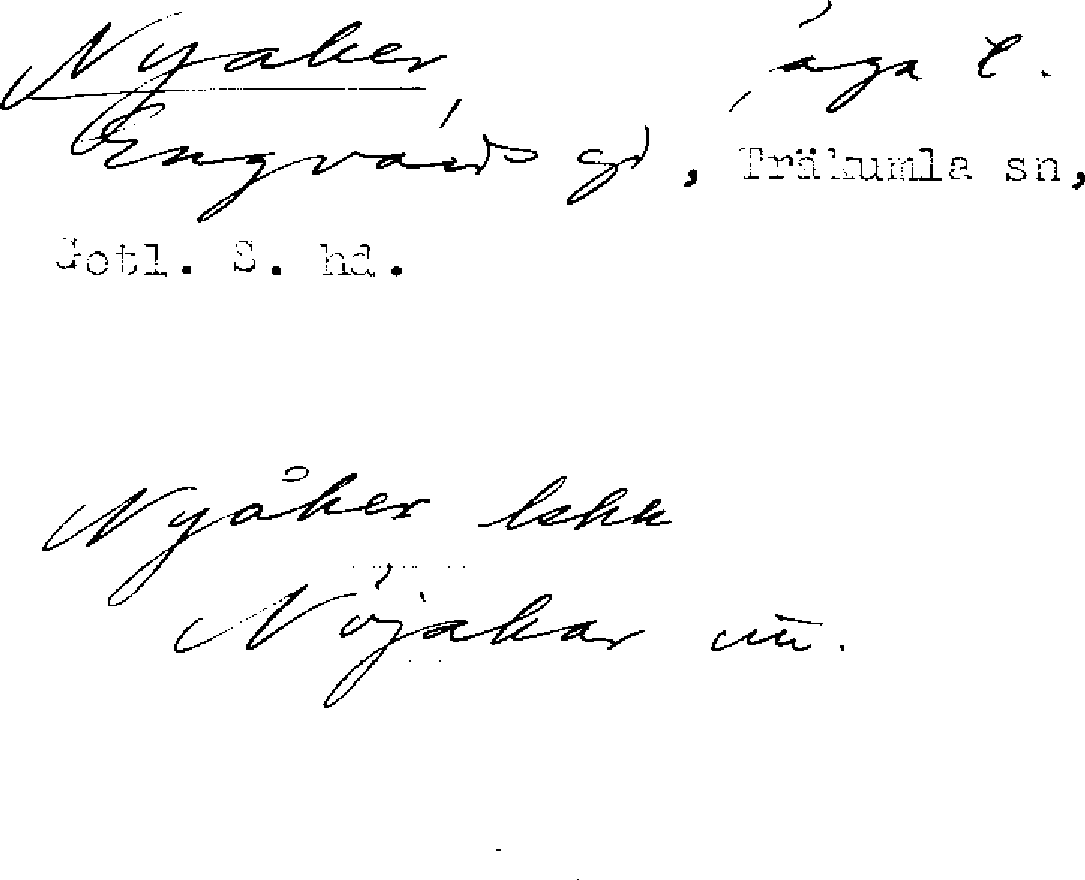 Nyaker åga l.
Engvards gd, Träkumla sn,
Gotl. S. hd.
Nyåker lskk
Nöjakar m.